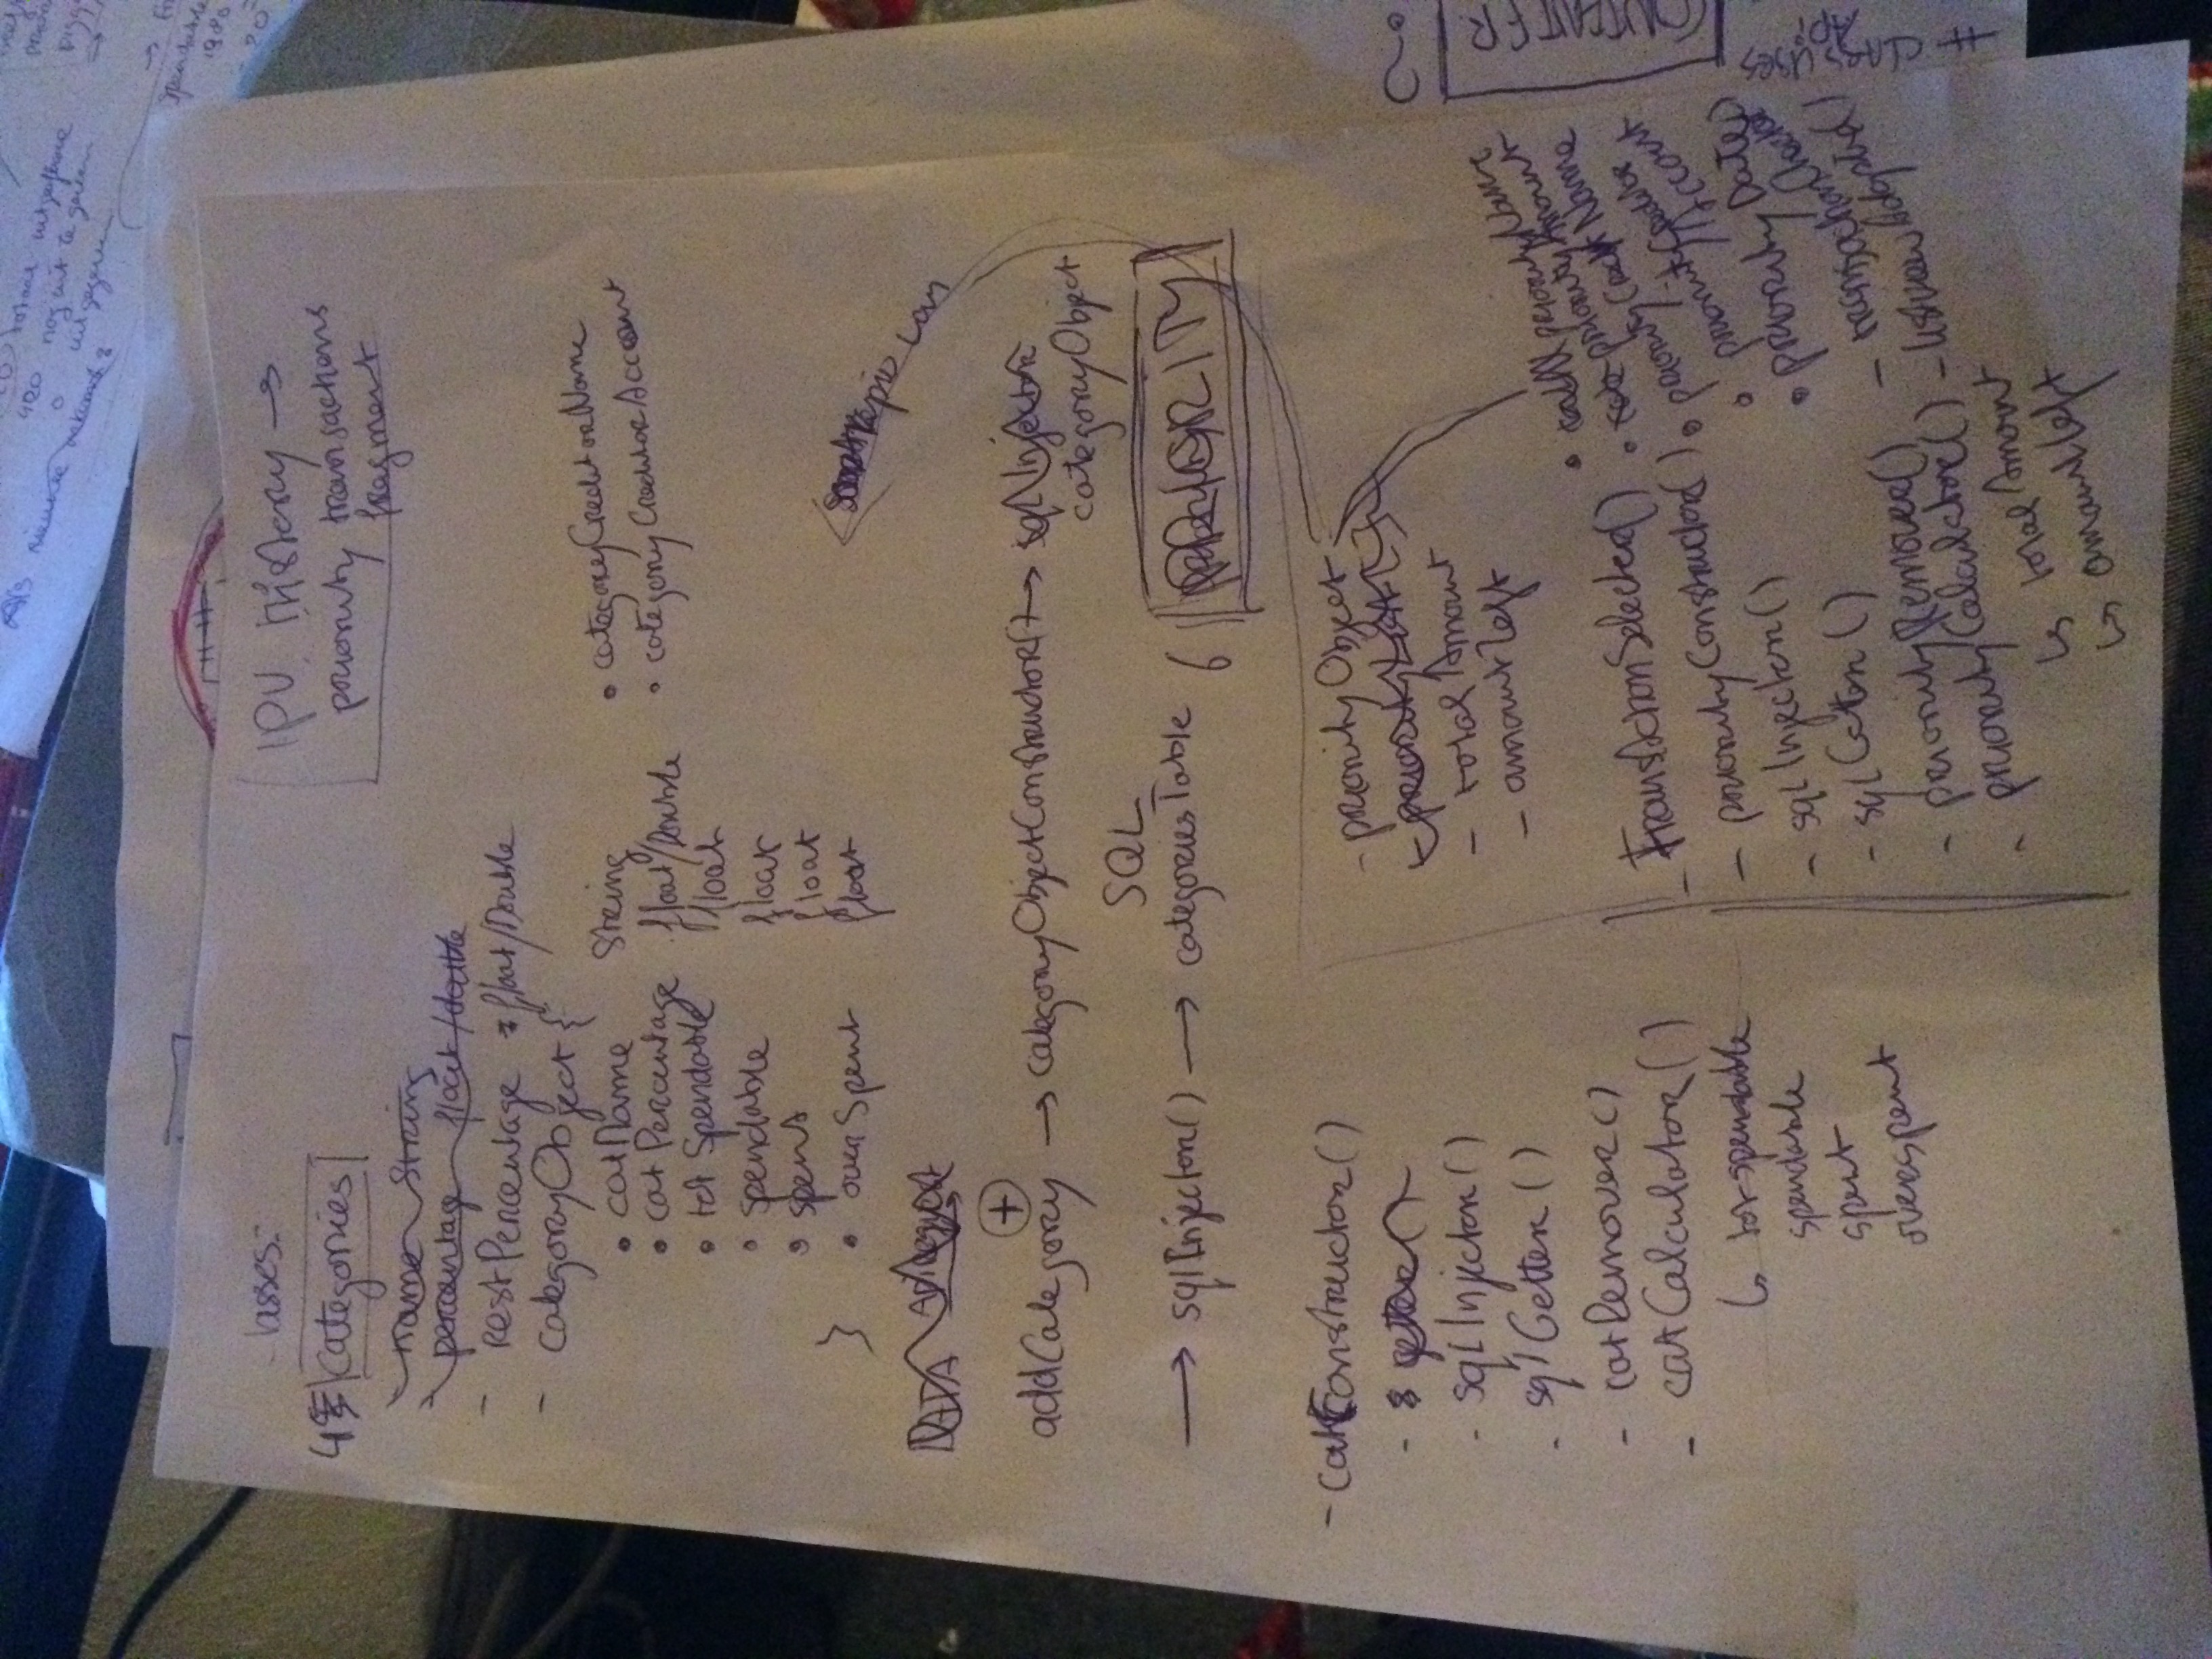 lasses:
IPV History →
priority transactions
fragment
categories
- name String
- percentage float/double
- restPercentage float/Double
- categoryObject {
• catName String
• catPercentage float/Double
• totSpendable float
• spendable float
• spent float
} • overSpent float
• categoryCreditorName
• categoryCreditorAccount
DATA
+
addCategory → categoryObjectConstructor() → sqlInjector
categoryObject
→ sqlInjector() → SQL
categoriesTable
6 PRIORITY
- catConstructor()
- getter()
- sqlInjector()
- sqlGetter()
- catRemover()
- catCalculator()
↳ totspendable
spendable
spent
overspent
- priorityObject
- priorityList []
- totalAmount
- amountleft
• priorityName
• priorityAmount
• priorityCreditName
• priorityCreditor
Account
• priorityDate
- TransActionSelecter()
- priorityConstructor()
- sqlInjector()
- sqlGetter()
- priorityRemover()
- priorityCalculator()
↳ totalAmount
↳ amountleft
- listviewAdapter()
?
# class uses
API
420 nog uit te geven
0 uitgegeven